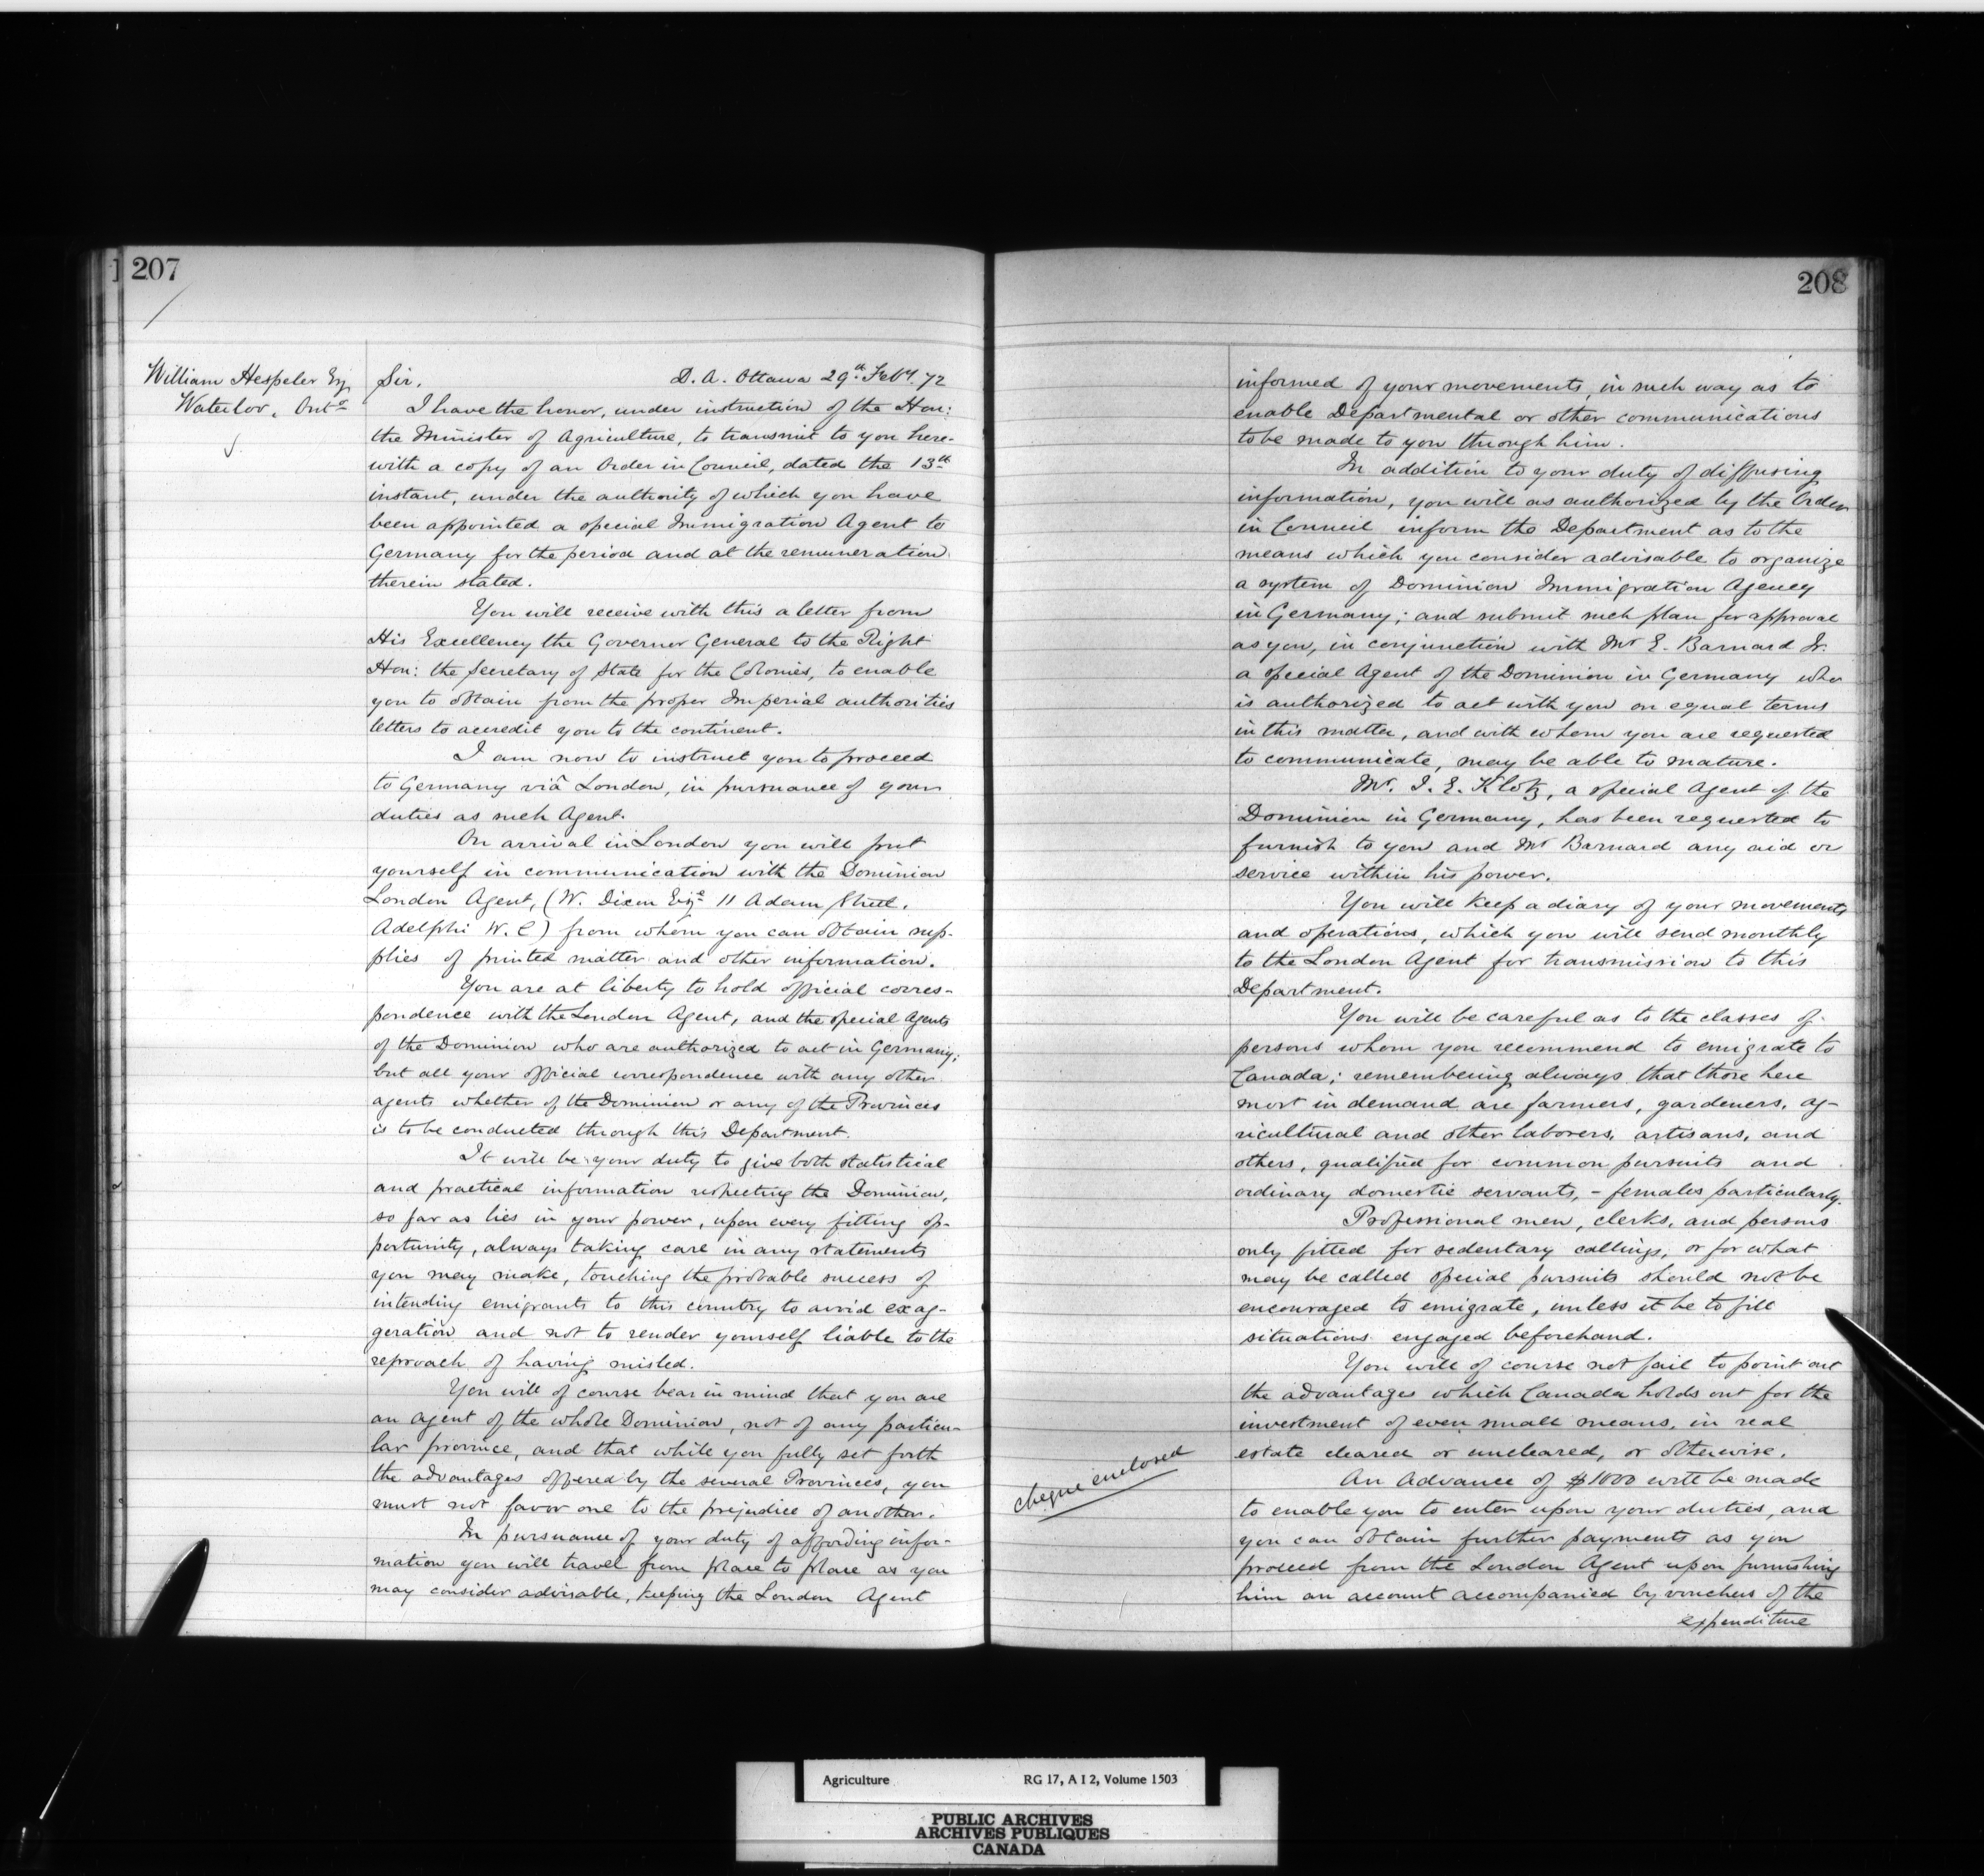 207
William Hespeler Esq
Waterloo, Onto
Sir, D. A. Ottawa 29th Feby. 72
I have the honor, under instruction of the Hon:
the Minister of Agriculture, to transmit to you here-
with a copy of an Order in Council, dated the 13th
instant, under the authority of which you have
been appointed a special Immigration Agent to
Germany for the period and at the remuneration
therein stated.
You will receive with this a letter from
His Excellency the Governor General to the Right
Hon: the Secretary of State for the Colonies, to enable
you to obtain from the proper Imperial authorities
letters to accredit you to the continent.
I am now to instruct you to proceed
to Germany viâ London, in pursuance of your
duties as such Agent.
On arrival in London you will put
yourself in communication with the Dominion
London Agent, (W. Dixon Esqe 11 Adam Street,
Adelphi W. C) from whom you can obtain sup-
plies of printed matter and other information.
You are at liberty to hold official corres-
pondence with the London Agent, and the special Agents
of the Dominion who are authorized to act in Germany;
but all your official correspondence with any other
agents whether of the Dominion or any of the Provinces
is to be conducted through this Department.
It will be your duty to give both statistical
and practical information respecting the Dominion,
so far as lies in your power, upon every fitting op-
portunity, always taking care in any statements
you may make, touching the probable success of
intending emigrants to this country to avoid exag-
geration and not to render yourself liable to the
reproach of having misled.
You will of course bear in mind that you are
an agent of the whole Dominion, not of any particu-
lar province, and that while you fully set forth
the advantages offered by the several Provinces, you
must not favor one to the prejudice of another.
In pursuance of your duty of affording infor-
mation you will travel from place to place as you
may consider advisable, keeping the London Agent
208
informed of your movements, in such way as to
enable Departmental or other communications
to be made to you through him.
In addition to your duty of diffusing
information, you will as authorized by the Order
in Council inform the Department as to the
means which you consider advisable to organize
a system of Dominion Immigration Agency
in Germany; and submit such plan for approval
as you, in conjunction with Mr E. Barnard Jr.
a special Agent of the Dominion in Germany who
is authorized to act with you on equal terms
in this matter, and with whom you are requested
to communicate, may be able to mature.
Mr. I. E. Klotz, a special Agent of the
Dominion in Germany, has been requested to
furnish to you and Mr Barnard any aid or
service within his power.
You will keep a diary of your movements
and operations, which you will send monthly
to the London Agent for transmission to this
Department.
You will be careful as to the classes of
persons whom you recommend to emigrate to
Canada; remembering always that those here
most in demand are farmers, gardeners, ag-
ricultural and other laborers, artisans, and
others, qualified for common pursuits and
ordinary domestic servants, - females particularly.
Professional men, clerks, and persons
only fitted for sedentary callings, or for what
may be called special pursuits should not be
encouraged to emigrate, unless it be to fill
situations engaged beforehand.
You will of course not fail to point out
the advantages which Canada holds out for the
investment of even small means, in real
estate cleared or uncleared, or otherwise.
cheque enclosed
An Advance of $1000 will be made
to enable you to enter upon your duties, and
you can obtain further payments as you
proceed from the London Agent upon furnishing
him an account accompanied by vouchers of the
expenditure
Agriculture RG 17, A I 2, Volume 1503
PUBLIC ARCHIVES
ARCHIVES PUBLIQUES
CANADA